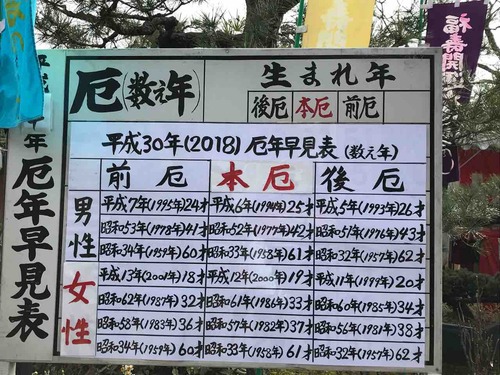 厄(数え年)
生まれ年
後厄 本厄 前厄
平成30年(2018)厄年早見表(数え年)
前厄 本厄 後厄
男性
平成7年(1995年)24才 平成6年(1994年)25才 平成5年(1993年)26才
昭和53年(1978年)41才 昭和52年(1977年)42才 昭和51年(1976年)43才
昭和34年(1959年)60才 昭和33年(1958年)61才 昭和32年(1957年)62才
女性
平成13年(2001年)18才 平成12年(2000年)19才 平成11年(1999年)20才
昭和62年(1987年)32才 昭和61年(1986年)33才 昭和60年(1985年)34才
昭和58年(1983年)36才 昭和57年(1982年)37才 昭和56年(1981年)38才
昭和34年(1959年)60才 昭和33年(1958年)61才 昭和32年(1957年)62才
年厄年早見表
福寿開